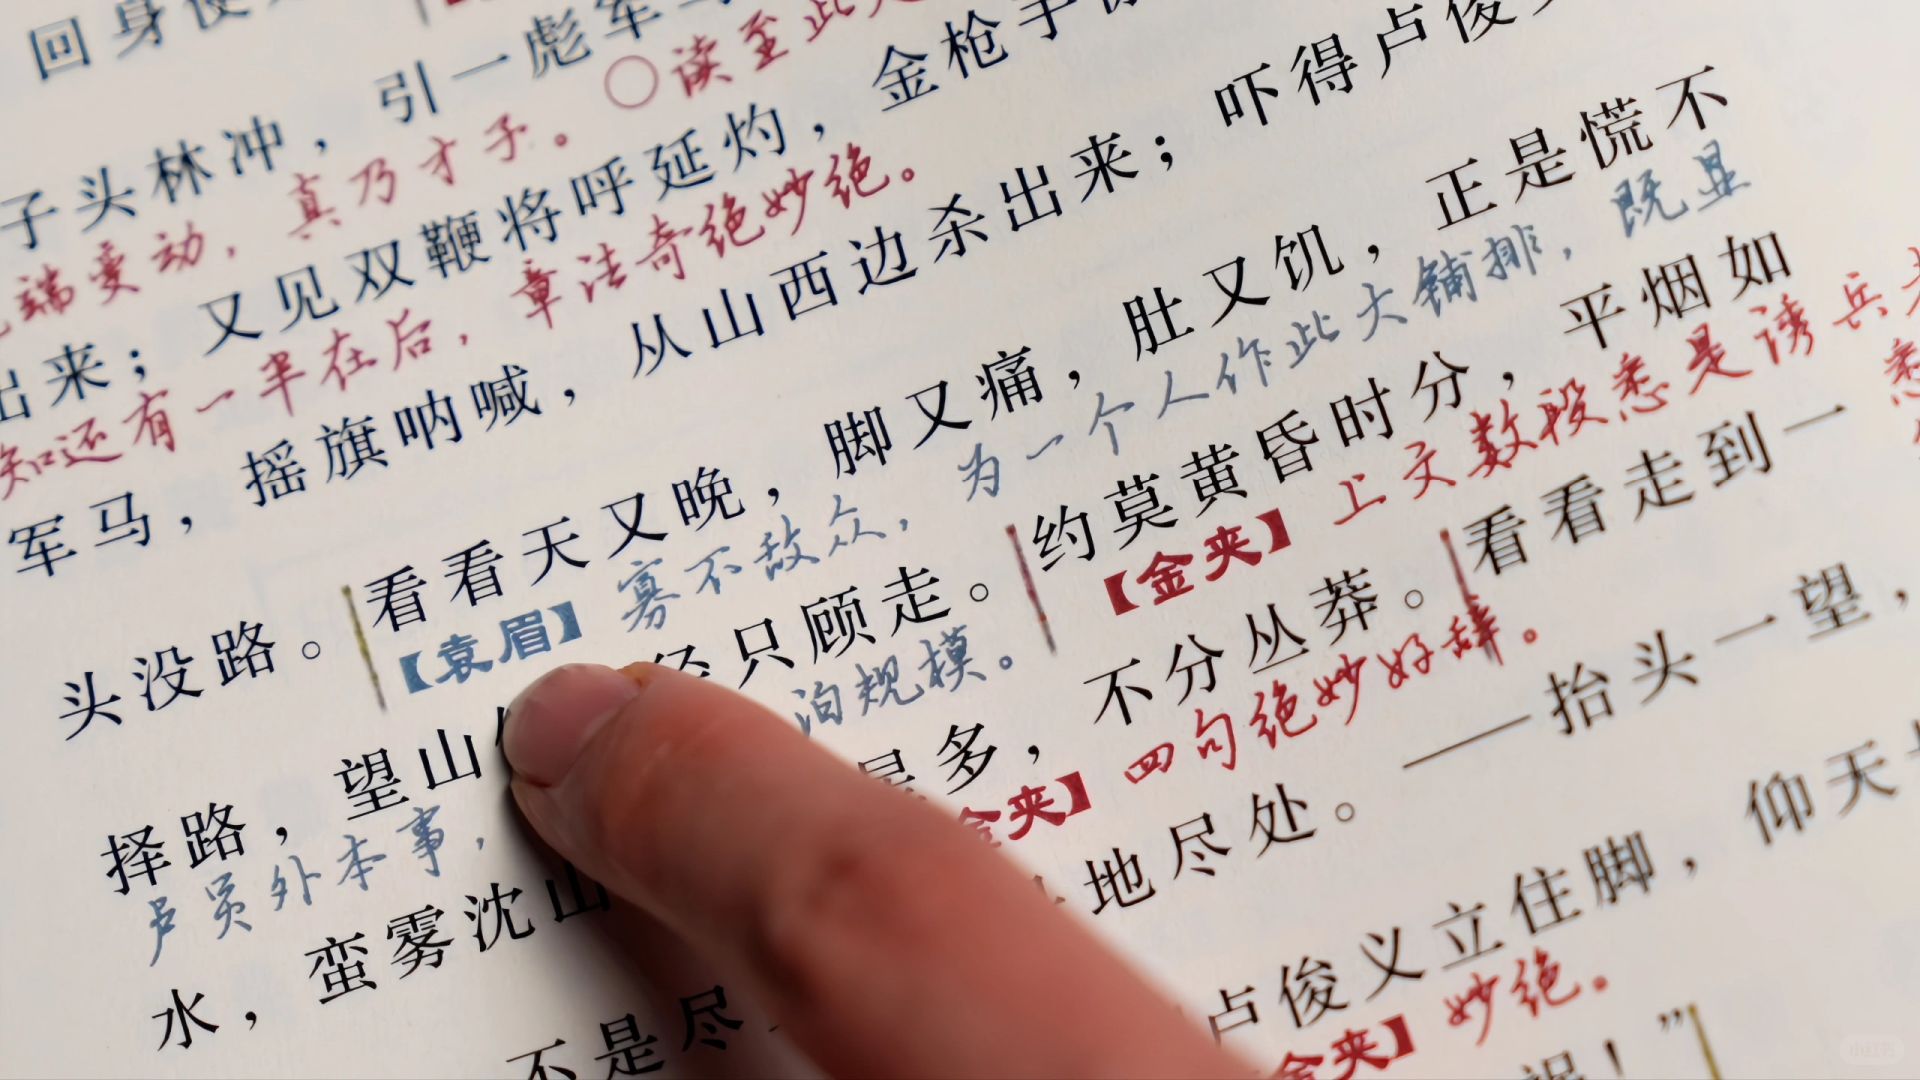 回身便
子头林冲，引一彪军马
端变动，真乃才子。○读至此
出来；又见双鞭将呼延灼，金枪手
知还有一半在后，章法奇绝妙绝。
军马，摇旗呐喊，从山西边杀出来；吓得卢俊
头没路。看看天又晚，脚又痛，肚又饥，正是慌不
【袁眉】寡不敌众，为一个人作此大铺排，既显
择路，望山 径只顾走。约莫黄昏时分，平烟如
卢员外本事， 泊规模。【金夹】上文数段悉是诱兵
水，蛮雾沈山 多，不分丛莽。看看走到一
金夹】四句绝妙好辞。
不是尽 地尽处。——抬头一望，
卢俊义立住脚，仰天
金夹】妙绝。
祸！”